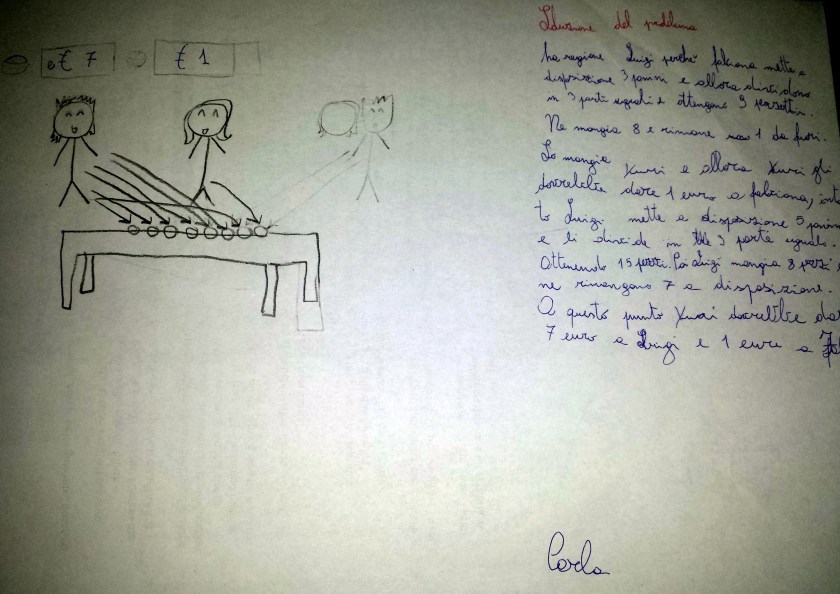 € 7
€ 1
Soluzione del problema
ha ragione Luigi perché fabiana mette a
disposizione 3 panini e allora dividono
in 3 parti uguali e ottengono 9 pezzetti.
Ne mangia 8 e rimane 1 da fuori.
Lo mangia Yuri e allora Yuri gli
dovrebbe dare 1 euro a fabiana, int
to Luigi mette a disposizione 5 panin
e li divide in 3 parti uguale.
Ottenendo 15 pezzi. Poi Luigi mangia 8 pezzi
ne rimangono 7 a disposizione.
A questo punto Yuri dovrebbe da
7 euro a Luigi e 1 euro a
Carla